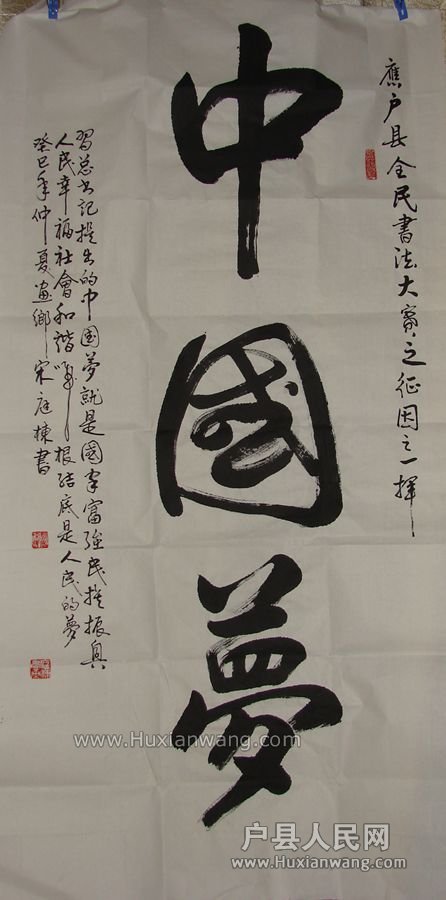 應户县全民書法大賽之征因之一揮
中國夢
習总书记提出的中国梦就是國家富強民族振興
人民幸福社會和諧归根结底是人民的夢
癸巳年仲夏画鄉宋庭棟書
www.Huxianwang.com
户县人民网
www.Huxianwang.com